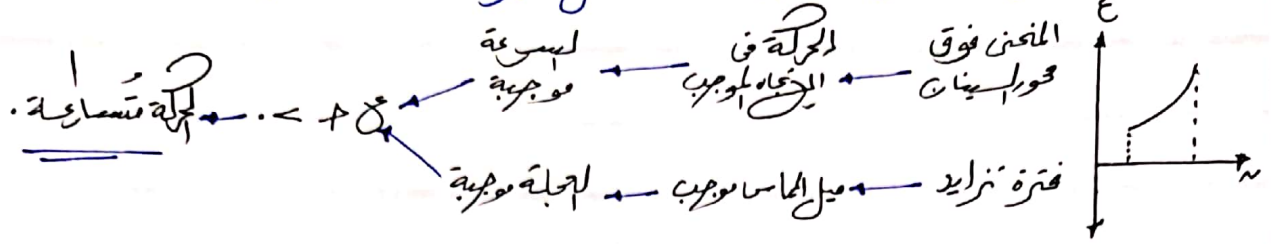 ع
المنحنى فوق محور السينات
الحركة فى الإتجاه الموجب
السرعة موجبة
فترة تزايد
ميل المماس موجب
العجلة موجبة
الحركة مُتسارعة .
ن